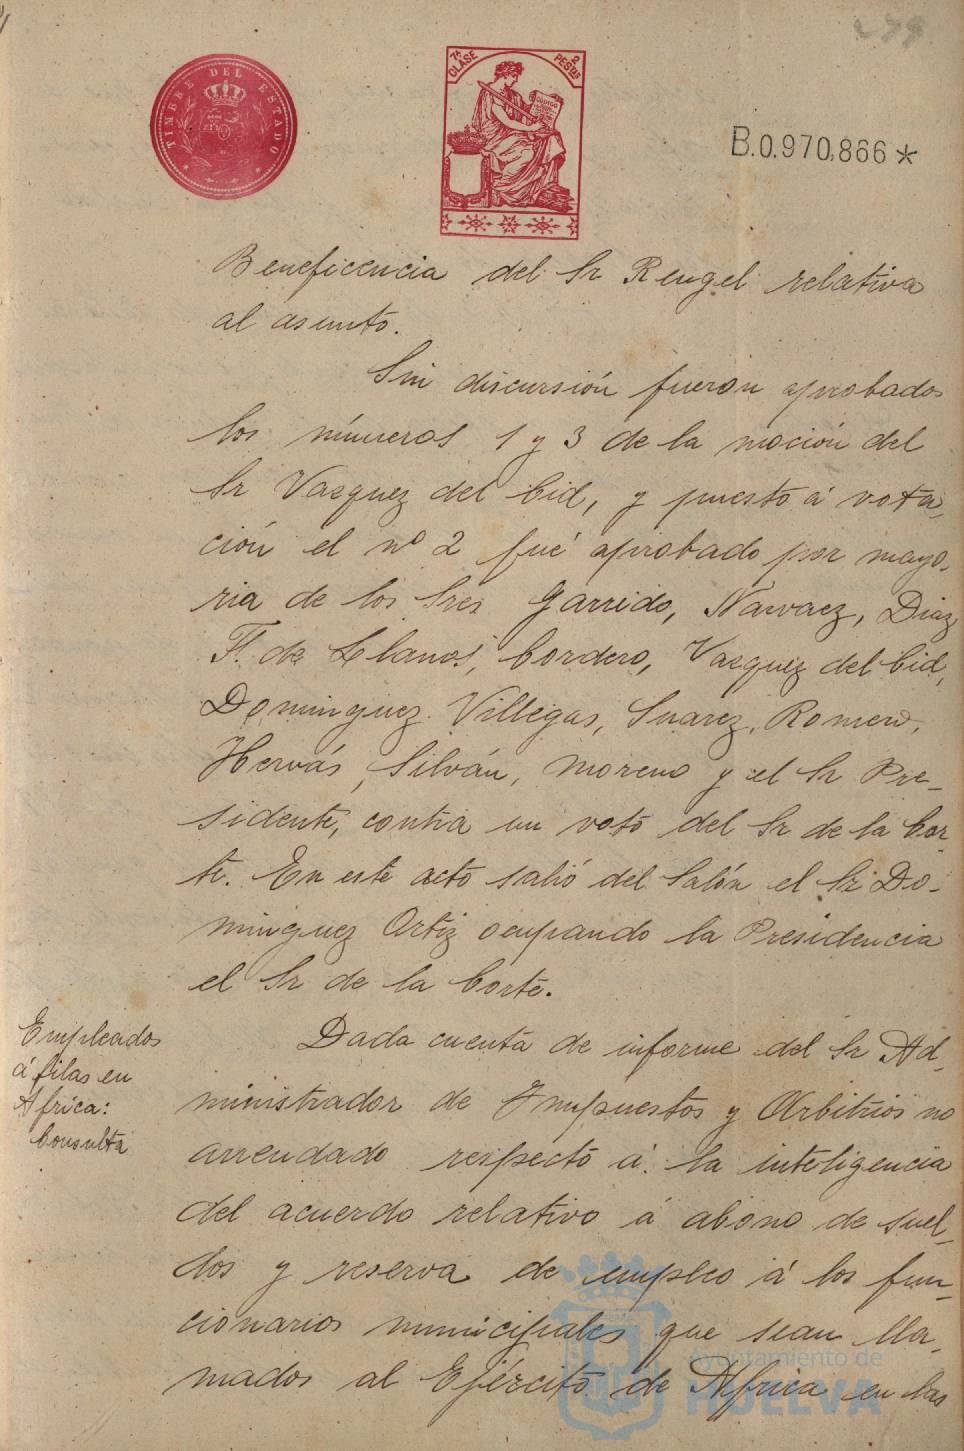 279
TIMBRE DEL ESTADO
7ª CLASE
2 PESTAS
CODIGO
B.0.970,866*
Beneficencia del Sr Rengel relativa
al asunto.
Sin discursión fueron aprobados
los números 1 y 3 de la moción del
Sr Vazquez del Cid, y puesto á vota,
ción el nº 2 fué aprobado por mayo-
ria de los Sres Garrido, Narvaez, Diaz
F. de Llanos, Cordero, Vazquez del Cid,
Dominguez Villegas, Suarez, Romero,
Hervás, Silván, Moreno y el Sr Pre-
sidente, contra un voto del Sr de la Cor-
te. En este acto salió del Salón el Sr Do-
minguez Ortiz ocupando la Presidencia
el Sr de la Corte.
Empleados
á filas en
Africa:
Consulta
Dada cuenta de informe del Sr Ad-
ministrador de Impuestos y Arbitrios no
arrendado respecto á la inteligencia
del acuerdo relativo á abono de suel-
dos y reserva de empleo á los fun-
cionarios municipales que sean lla-
mados al Ejército de Africa en las
Ayuntamiento de
HUELVA